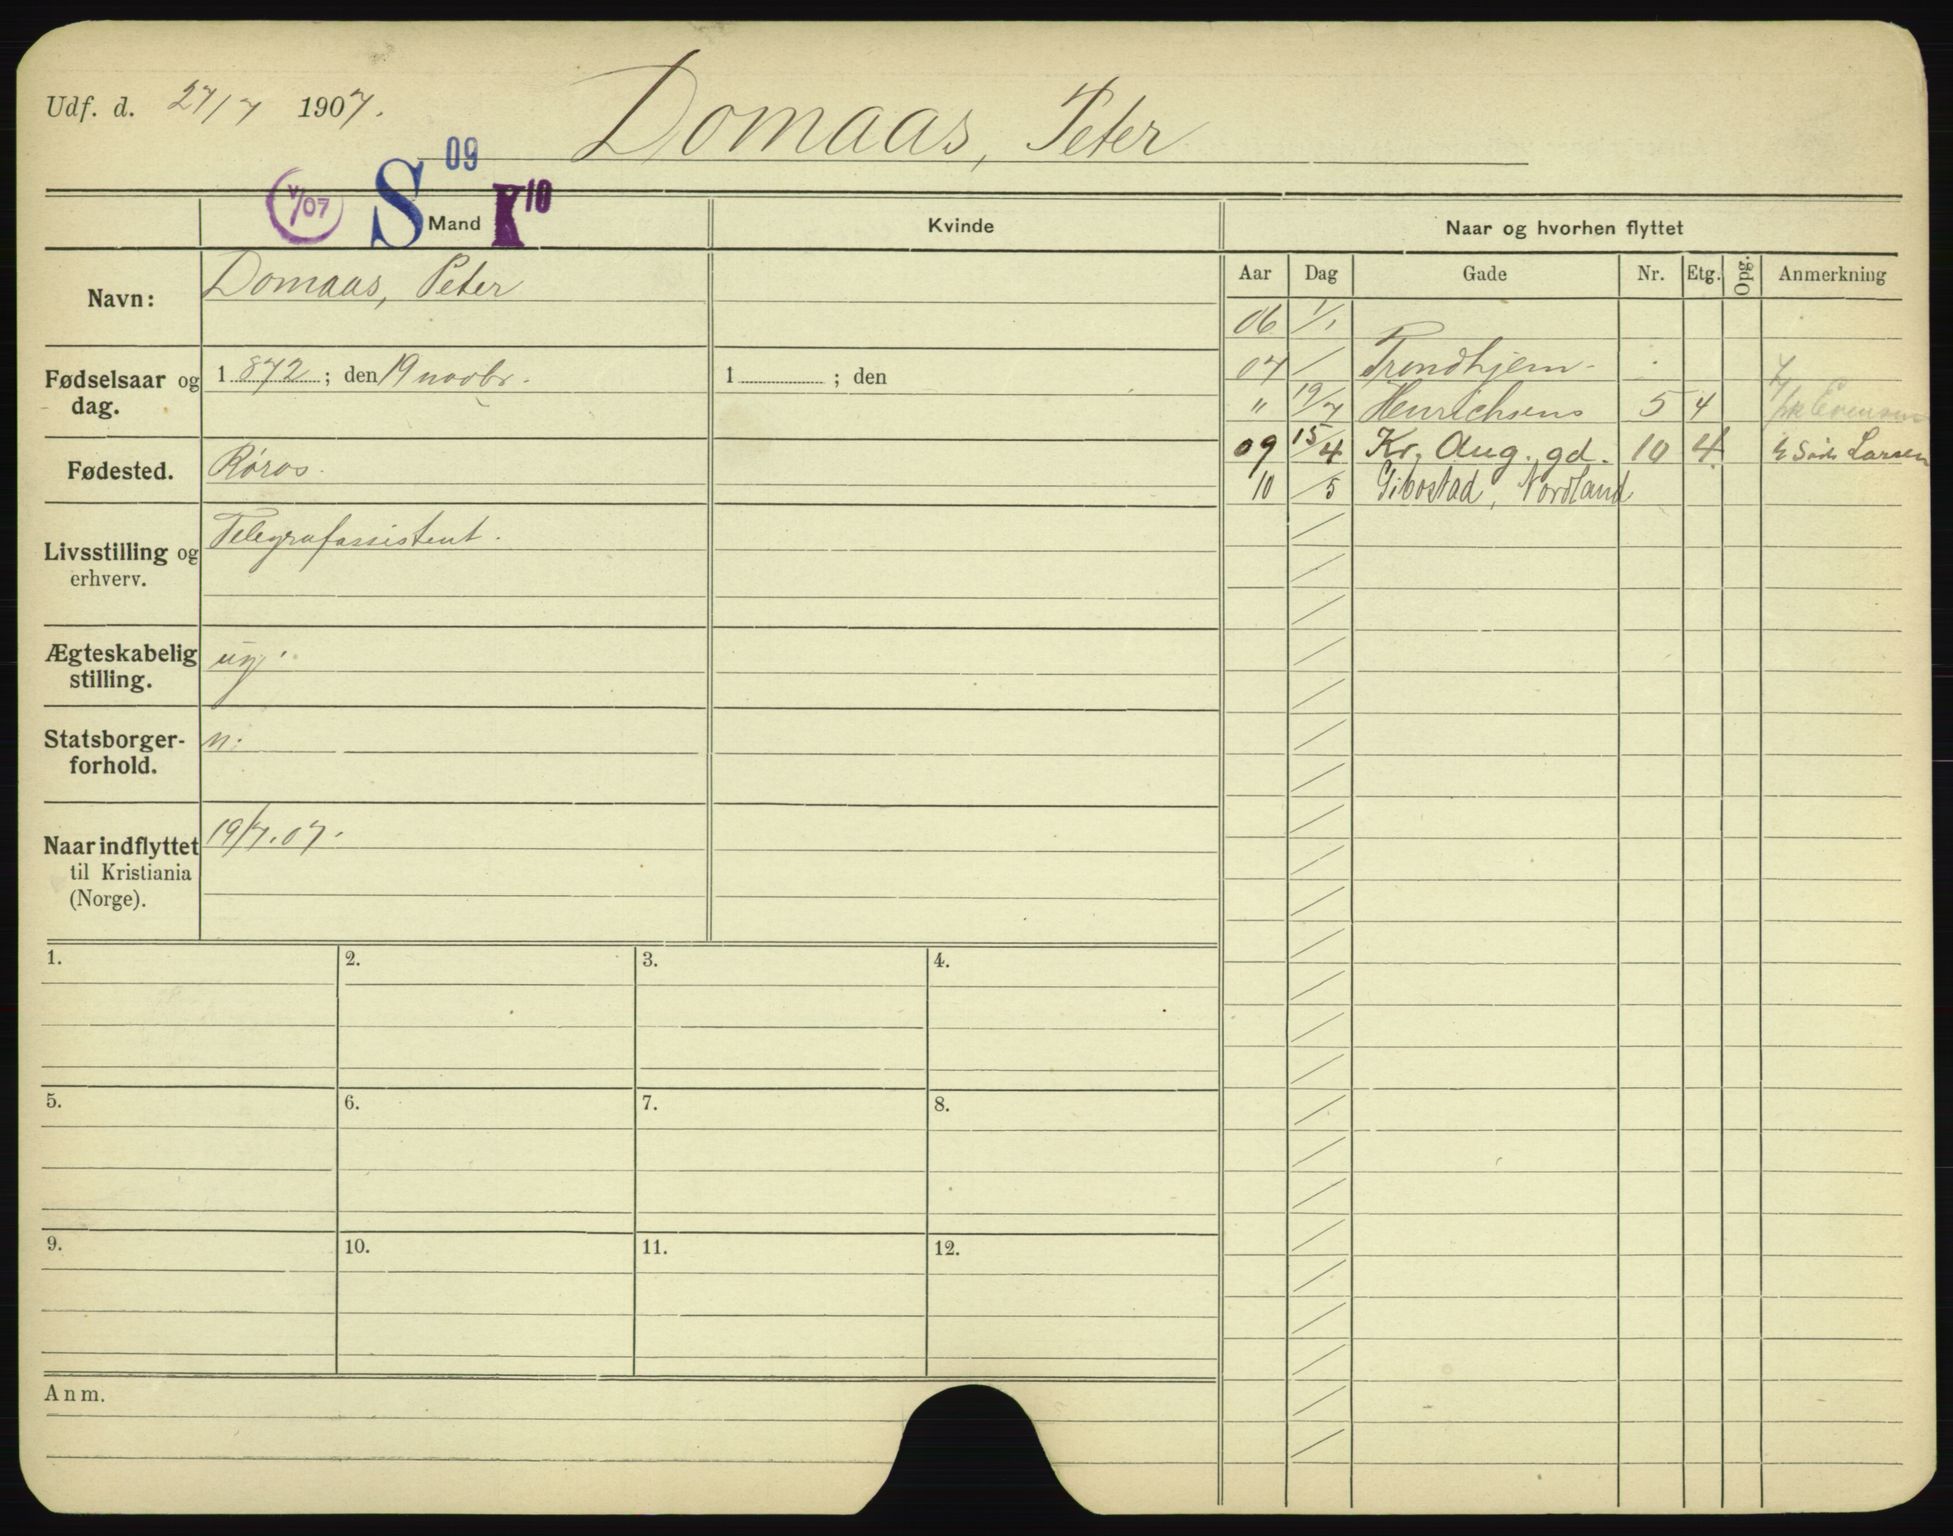 Udf. d. 27/7 1907.
Domaas, Peter
V/07 S 09 K 10
Mand Kvinde Naar og hvorhen flyttet
Aar Dag Gade Nr. Etg. Opg. Anmerkning
Navn: Domaas, Peter
06 1/1
07 / Trondhjem
Fødselsaar og dag. 1 872 ; den 19 novbr. 1 ; den
" 19/7 Henrichsens 5 4
09 15/4 Kr. Aug. gd. 10 4 Larsen
Fødested. Røros.
10 /5 Gibostad, Nordland
Livsstilling og erhverv. Telegrafassistent.
Ægteskabelig stilling. ug.
Statsborgerforhold. n.
Naar indflyttet til Kristiania (Norge). 19/7.07.
1. 2. 3. 4.
5. 6. 7. 8.
9. 10. 11. 12.
Anm.